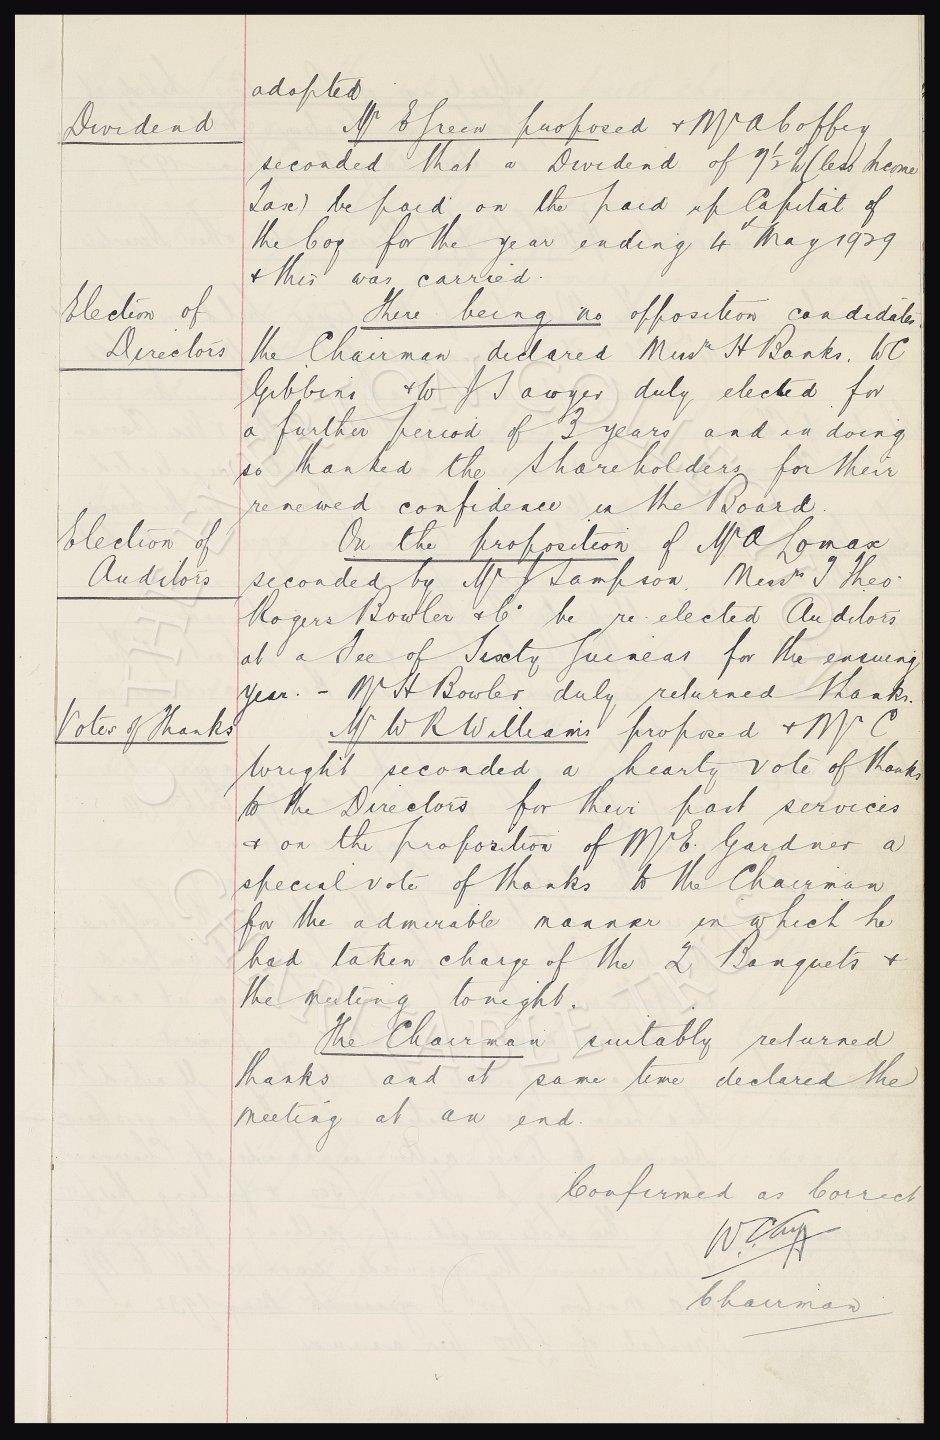 adopted
Dividend
Mr E Green proposed & Mr A Coffey
seconded that a Dividend of 7½ % (less Income
Tax) be paid on the paid up Capital of
the Coy for the year ending 4th May 1929
& this was carried.
Election of
Directors
There being no opposition candidates,
the Chairman declared Messrs H Banks, WC
Gibbins & W J Sawyer duly elected for
a further period of 3 years and in doing
so thanked the Shareholders for their
renewed confidence in the Board.
Election of
Auditors
On the proposition of Mr A Lomax
seconded by Mr J Sampson, Messrs T Theo
Rogers Bowler & Co be re-elected Auditors
at a Fee of Sixty Guineas for the ensuing
year. - Mr H Bowler duly returned thanks.
Votes of Thanks
Mr W R Williams proposed & Mr C
Wright seconded a hearty vote of thanks
to the Directors for their past services
& on the proposition of Mr E. Gardner a
special vote of thanks to the Chairman
for the admirable manner in which he
had taken charge of the 2 Banquets &
the meeting tonight.
The Chairman suitably returned
thanks and at same time declared the
meeting at an end.
Confirmed as Correct
Chairman